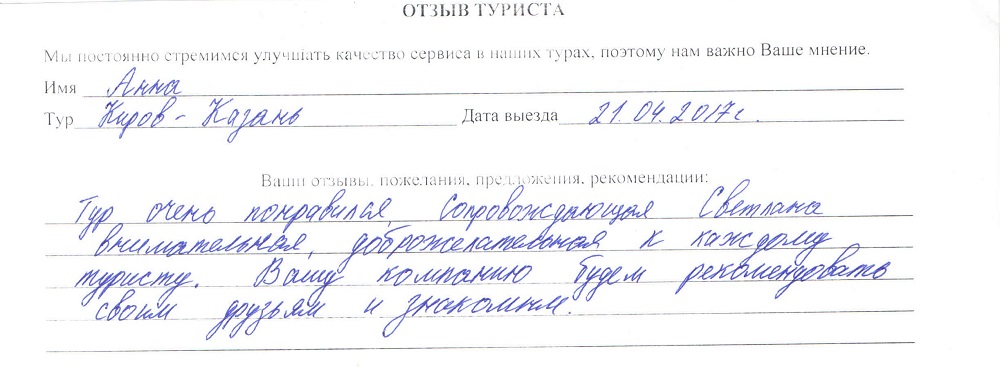 ОТЗЫВ ТУРИСТА
Мы постоянно стремимся улучшать качество сервиса в наших турах, поэтому нам важно Ваше мнение.
Имя Анна
Тур Киров - Казань Дата выезда 21.04.2017г.
Ваши отзывы, пожелания, предложения, рекомендации:
Тур очень понравился. Сопровождающая Светлана
внимательная, доброжелательная к каждому
туристу. Вашу компанию будем рекомендовать
своим друзьям и знакомым.